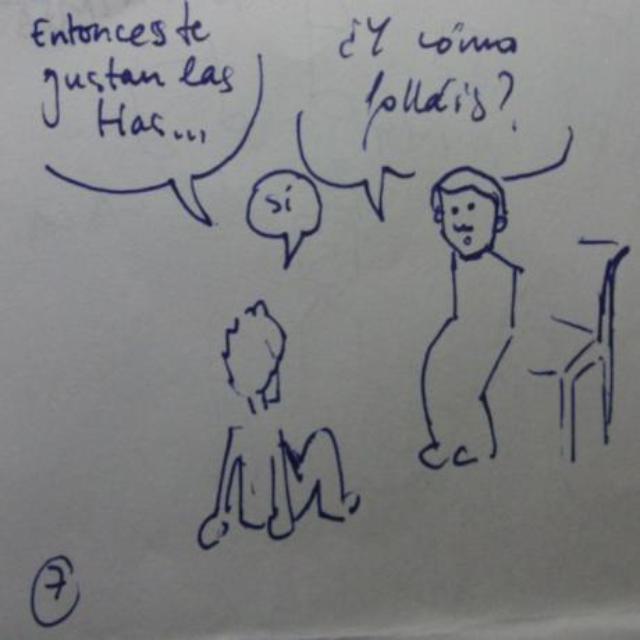 Entonces te
gustan las
Has...
sí
¿Y cómo
folláis?
7